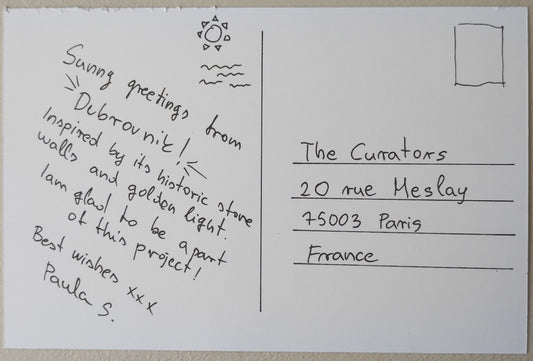 Sunny greetings from
Dubrovnik!
Inspired by its historic stone
walls and golden light.
I am glad to be apart
of this project!
Best wishes xxx
Paula S.
The Curators
20 rue Meslay
75003 Paris
France